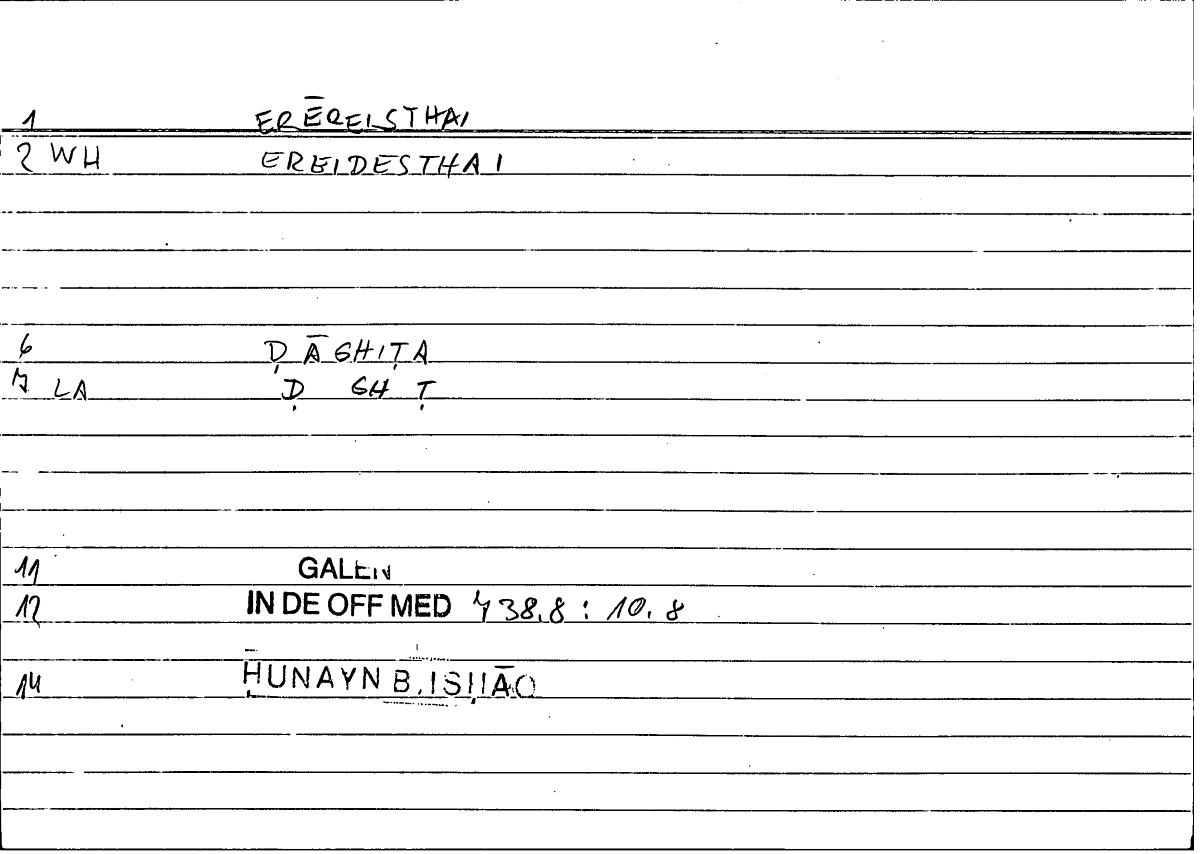 1 ERĒREISTHAI
2 WH EREIDESTHAI
6 ḌĀGHIṬA
7 LA Ḍ GH Ṭ
11 GALEN
12 IN DE OFF MED 738.8 : 10.8
14 ḤUNAYN B. ISḤĀQ